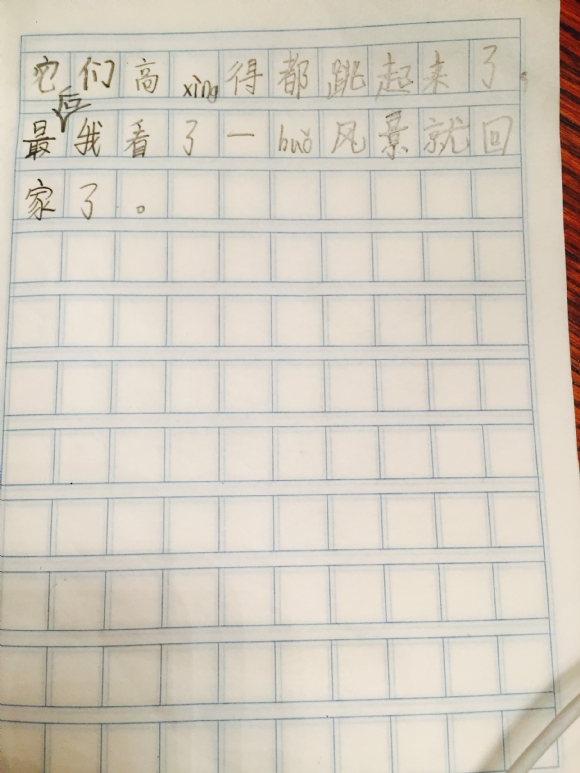 它们高xìng得都跳起来了。
最后我看了一huǒ风景就回
家了。